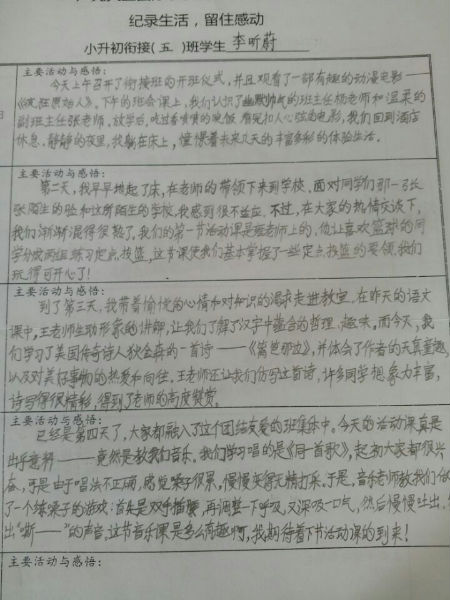 纪录生活，留住感动
小升初衔接(五)班学生 李昕蔚
主要活动与感悟:
今天上午召开了衔接班的开班仪式，并且观看了一部有趣的动漫电影——
《疯狂原始人》。下午的班会课上，我们认识了幽默帅气的班主任杨老师和温柔的
副班主任张老师。放学后，吃过香喷喷的晚饭 看完扣人心弦的电影，我们回到酒店
休息。静静的夜里，我躺在床上，憧憬着未来几天的丰富多彩的体验生活。
主要活动与感悟:
第二天，我早早地起了床，在老师的带领下来到学校。面对同学们那一张
张陌生的脸和这所陌生的学校，我感到很不适应。不过，在大家的热情交谈下，
我们渐渐混得很熟了。我们的第一节活动课是 老师上的，他让喜欢篮球的同
学分成两组练习定点投篮，这节课使我们基本掌握了一些定点投篮的要领。我们
玩得可开心了！
主要活动与感悟:
到了第三天，我带着愉悦的心情和对知识的渴求走进教室。在昨天的语文
课中，王老师生动形象的讲解，让我们了解了汉字中蕴含的哲理、趣味。而今天，我
们学习了美国传奇诗人狄金森的一首诗——《篱笆那边》，并体会了作者的天真童趣
以及对美好事物的热爱和向往。王老师还让我们仿写这首诗，许多同学想象力丰富，
诗写得很精彩，得到了老师的高度赞赏。
主要活动与感悟:
已经是第四天了，大家都融入了这个团结友爱的班集体中。今天的活动课真是
出乎意料——竟然是教我们音乐。我们学习唱的是《同一首歌》，起初大家都很兴
奋，可是由于唱法不正确，感觉嗓子很累，慢慢变得无精打采。于是，音乐老师教我们做
了一个练嗓子的游戏：首先是双手插腰，再调整一下呼吸，又深吸一口气，然后慢慢吐出，
出“嘶——”的声音。这节音乐课是多么有趣啊，我期待着下节活动课的到来！
主要活动与感悟: